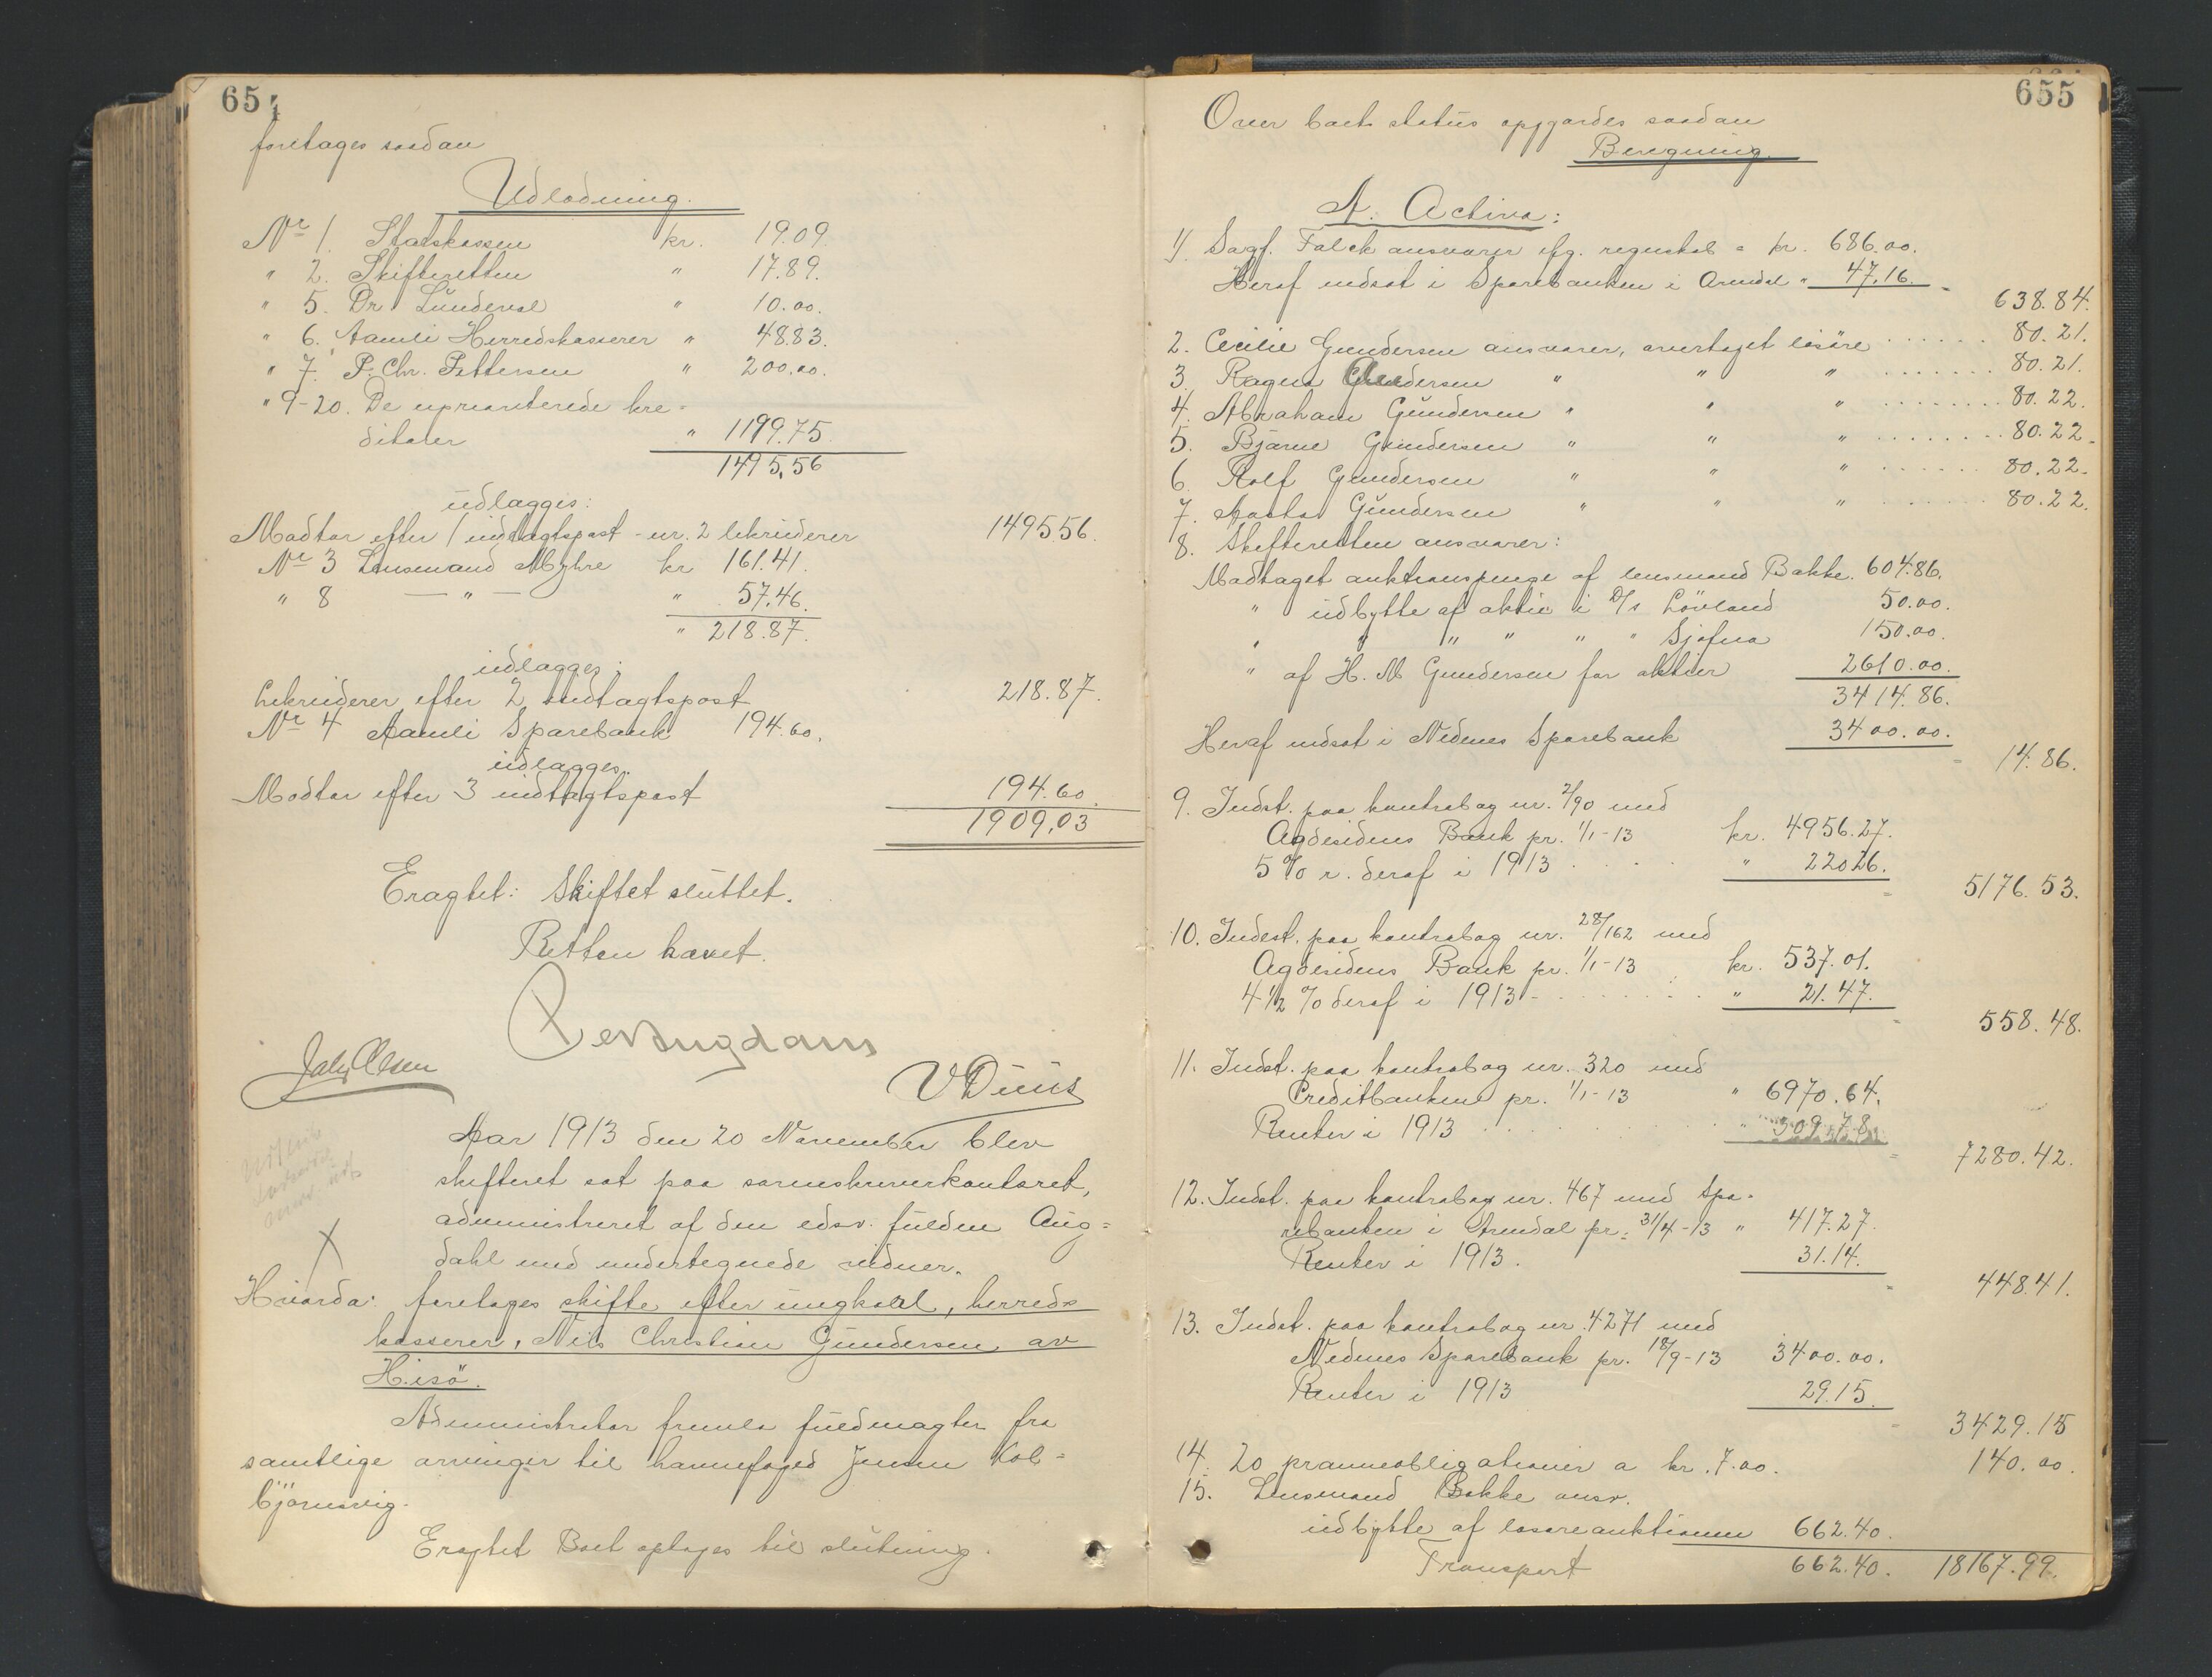 654
foretages saadan
Udlodning.
Nr 1. Statskassen kr. 19.09.
" 2. Skifteretten " 17.89.
" 5. Dr Lundeval " 10.00.
" 6. Aamli Herredskasserer " 48.83.
" 7. P. Chr. Pettersen " 200.00.
" 9-20. De uprioriterede kre=
ditorer " 1199.75
1495,56
udlægges:
Modtar efter 1 indtægtspost - nr. 2 likviderer 1495.56.
Nr 3 Lensmand Myhre kr 161.41.
" 8 — " — " 57.46.
" 218.87.
udlægges:
Likviderer efter 2 indtægtspost 218.87.
Nr 4 Aamli Sparebank 194.60.
udlægges.
Modtar efter 3 indtægtspost 194.60.
1909,03
Eragtet: Skiftet sluttet.
Retten hævet.
Per Augdahl
V Duus
Aar 1913 den 20 November blev
skifteret sat paa sorenskriverkontoret,
administreret af den edsv. fuldm Aug=
dahl med undertegnede vidner.
X
Hvorda: foretages skifte efter ungkarl, herreds
kasserer, Nils Christian Gundersen av
Hisö.
Administrator fremla fuldmagter fra
samtlige arvinger til havnefoged Jensen Kol=
bjørnsvig.
Eragtet Boet optages til slutning.
655
Over boets status opgjordes saadan
Beregning.
A. Activa:
1). Sagf. Falck ansvarer efg. regnskab = kr. 686.00.
Heraf indsat i Sparebanken i Arendal " 47.16. = 638.84.
2. Cecilie Gundersen ansvarer, overtaget løsøre ...... 80.21.
3. Ragna Gundersen " " " ....... 80.21.
4. Abraham Gundersen " " " ........ 80.22.
5. Bjarne Gundersen " " " ........ 80.22.
6. Rolf Gundersen " " " ...... 80.22.
7. Aasta Gundersen " " " ...... 80.22.
8. Skifteretten ansvarer:
Modtaget auktionspenge af lensmand Bakke. 604.86.
" udbytte af aktie i D/s Lövland 50.00.
" " " " " " Sjofna 150.00.
" af H. M Gundersen for aktier 2610.00.
3414.86.
Heraf indsat i Nedenes Sparebank 3400.00. = 14.86.
9. Indst. paa kontrabog nr. 2/90 med
Agdesidens Bank pr. 1/1-13 kr. 4956.27.
5 % r. deraf i 1913 .... " 220.26. = 5176.53.
10. Indest. paa kontrabog nr. 28/162 med
Agdesidens Bank pr. 1/1-13 kr. 537.01.
4 1/2 % deraf i 1913 - ...... " 21.47. = 558.48.
11. Indst. paa kontrabog nr. 320 med
Creditbanken pr. 1/1-13 " 6970.64.
Renter i 1913 ........ " 309.78. = 7280.42.
12. Indst. paa kontrabog nr. 467 med Spa=
rebanken i Arendal pr. 31/4-13 " 417.27.
Renter i 1913. 31.14. = 448.41.
13. Indst. paa kontrabog nr. 4271 med
Nedenes Sparebank pr. 18/9-13 3400.00.
Renter i 1913 29.15. = 3429.15
14. 20 præmieobligationer a kr. 7.00. 140.00.
15. Lensmand Bakke ansv.
udbytte af løsøreauktionen 662.40.
Transport 662.40. 18167.99.